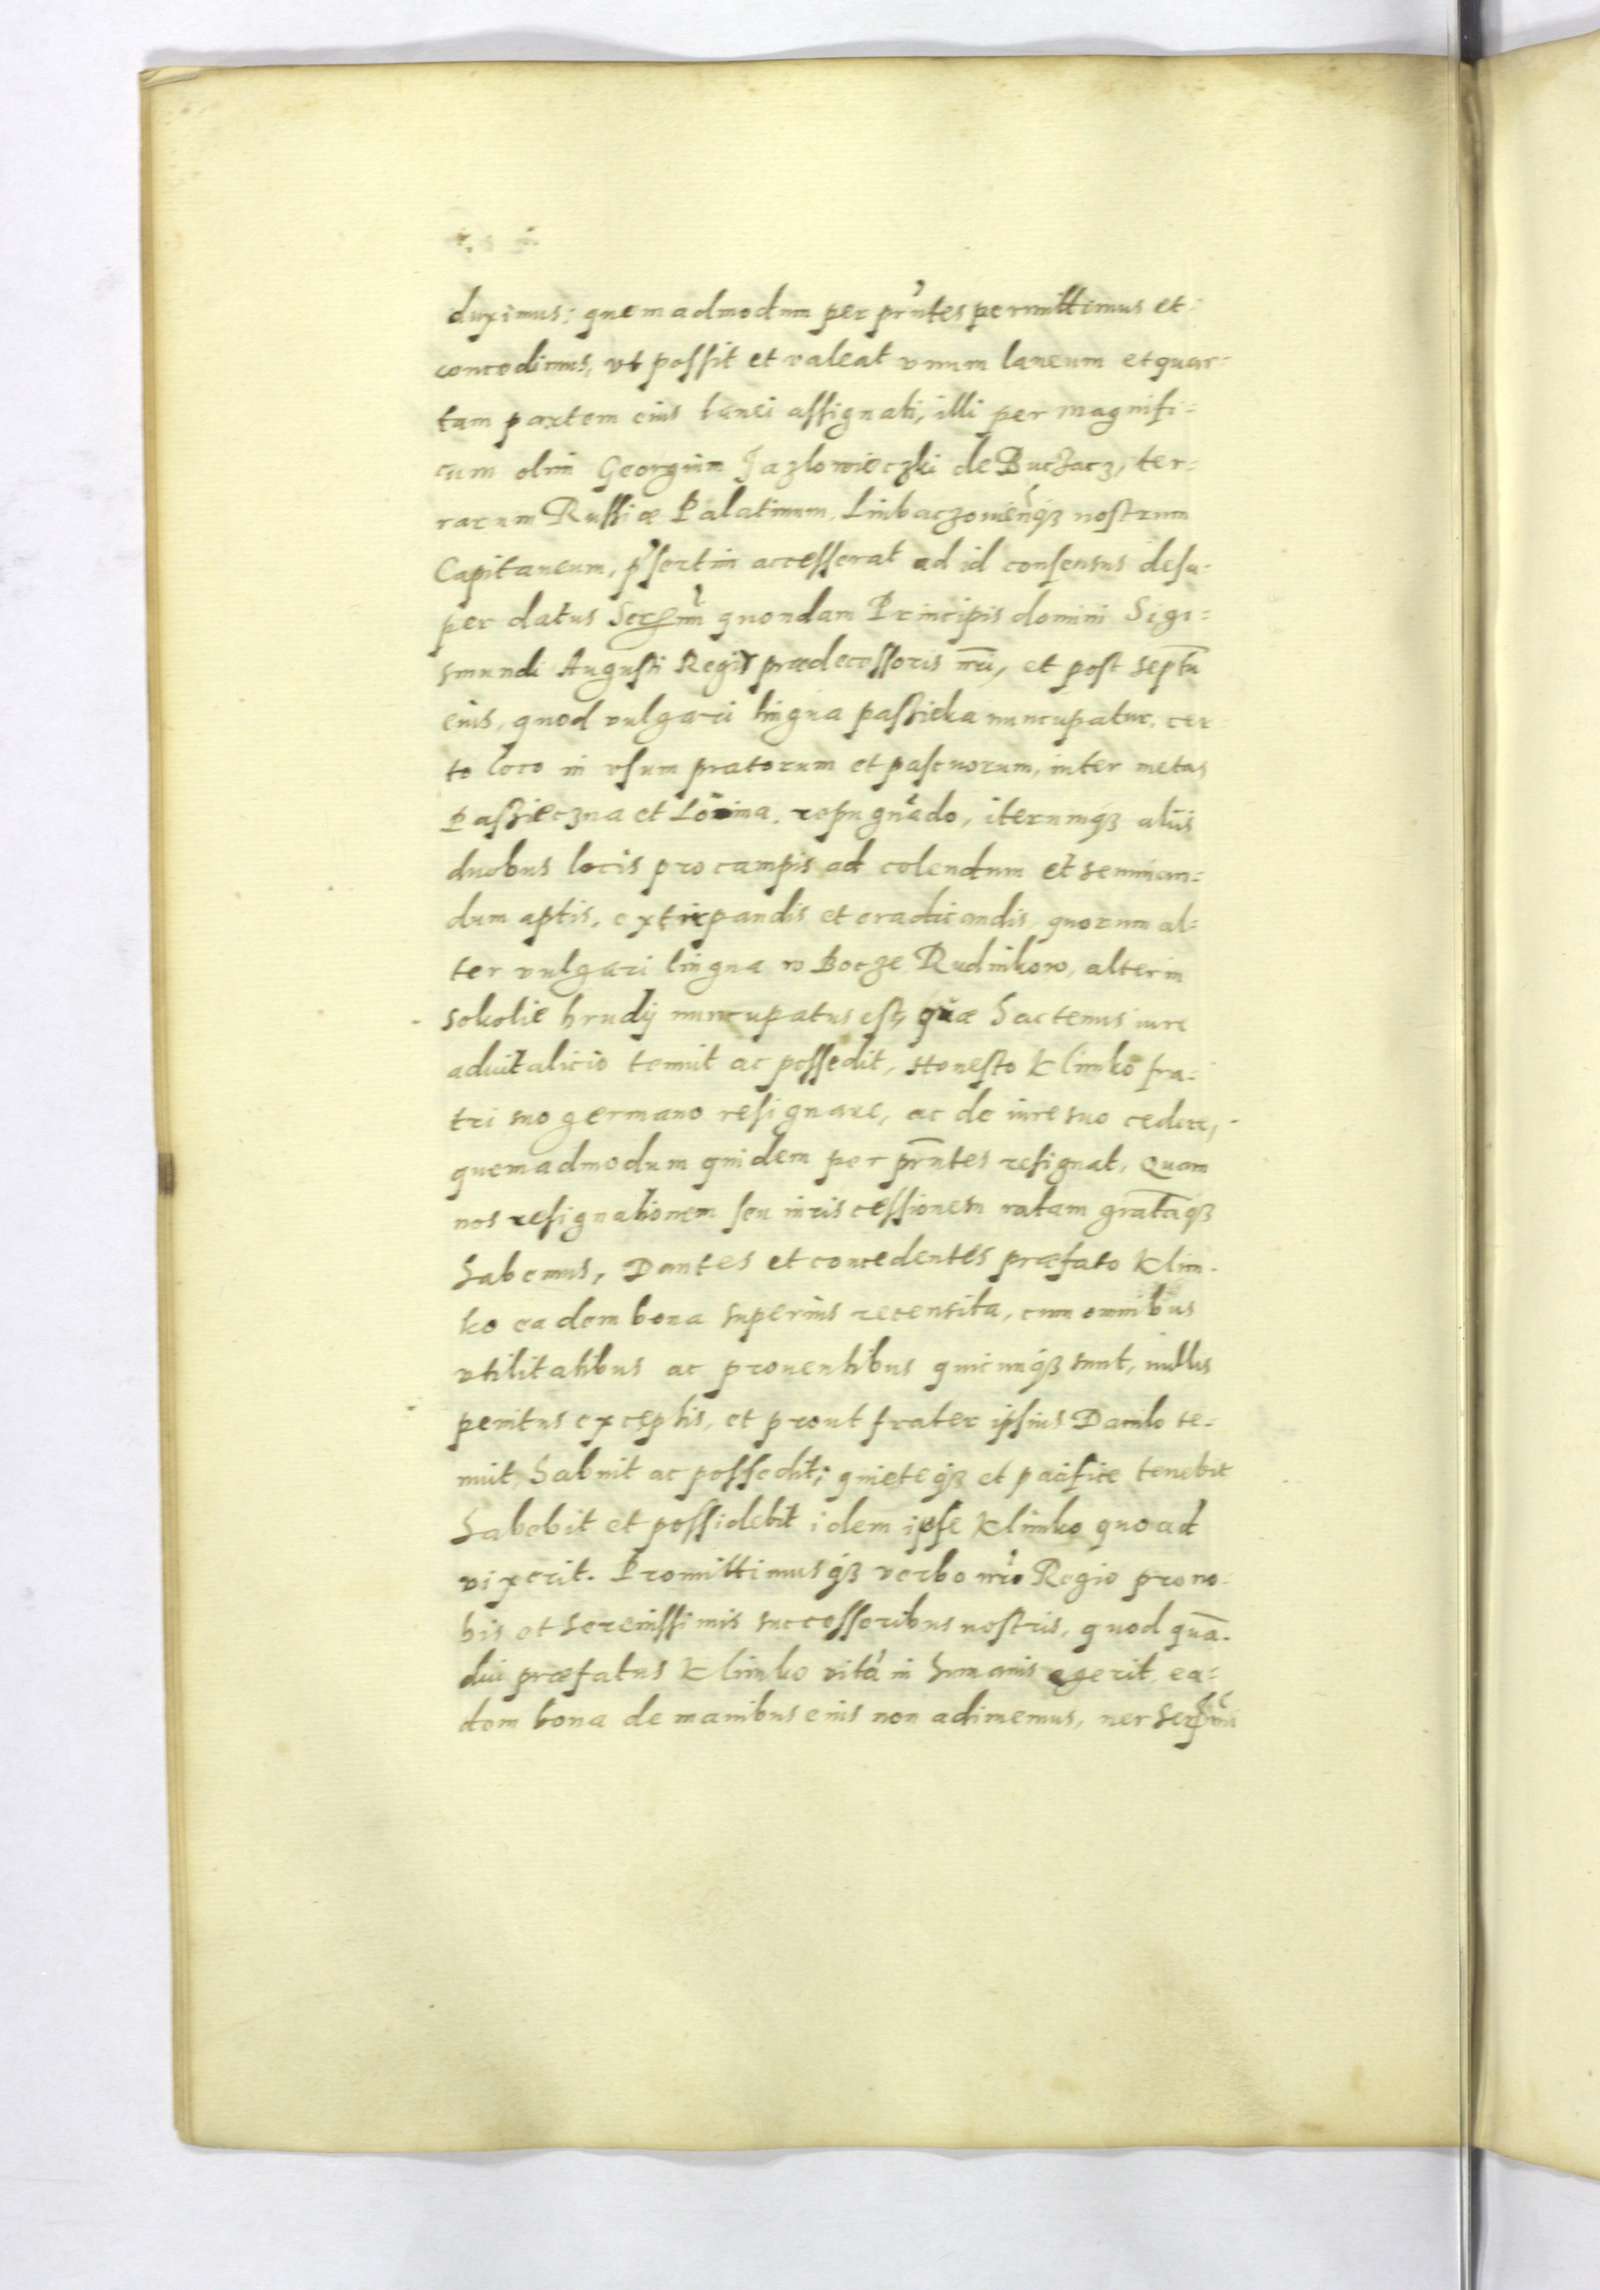 duximus: quemadmodum per pr̃ntes permittimus et
concedimus, vt possit et valeat vnum laneum et quar-
tam partem eius lanei assignati, illi per magnifi-
cum olim Georgium Jazlowieczki de Buczacz, ter-
rarum Russiæ Palatinum, Liubaczowieñq3 nostrum
Capitaneum, p̃sertim accesserat ad id consensus desu-
per datus Serẽmi quondam Principis domini Sigi-
smundi Augusti Regis prædecessoris nr̃i, et post septũ
eius, quod vulgari lingua passieka nuncupatur, cer
to loco in vsum pratorum et pascuorum, inter metas
Passieczna et repugnãdo, iterumq3 alijs
duobus locis pro campis ad colendum et seminan-
dum aptis, extirpandis et eradicandis, quorum al-
ter vulgari lingua w Bocze Rudnikow, alter in
sokolie hrudij nuncupatus est, quæ hactenus iure
aduitalicio tenuit ac possedit, Honesto Klimko fra-
tri suo germano resignare, ac de iure suo cedere,
quemadmodum quidem per pr̃ntes resignat, Quam
nos resignationem seu iuris cessionem ratam gratãq3
habemus, Dantes et concedentes præfato Klim-
ko eadem bona superius recensita, cum omnibus
vtilitatibus ac prouentibus quicunq3 sunt, nullis
penitus exceptis, et prout frater ipsius Danilo te-
nuit, habuit ac possedit; quieteq3 et pacifice tenebit
habebit et possidebit idem ipse Klimko quoad
vixerit. Promittimusq3 verbo nr̃o Regio pro no-
bis et serenissimis successoribus nostris, quod quã-
diu præfatus Klimko vitã in humanis egerit, ea-
dem bona de manibus eius non adimemus, nec